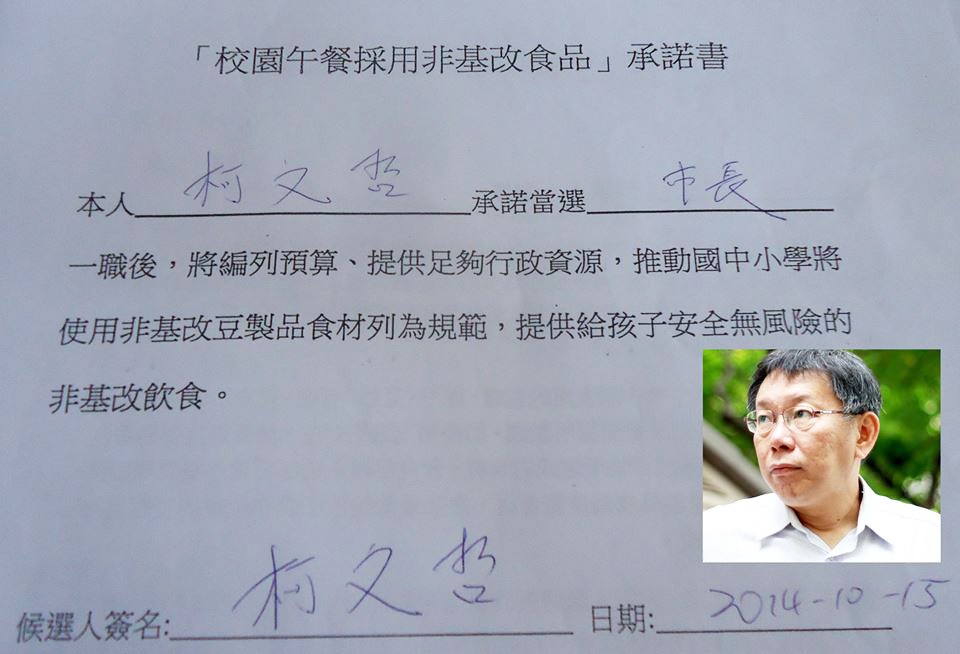 「校園午餐採用非基改食品」承諾書
本人柯文哲承諾當選市長
一職後，將編列預算、提供足夠行政資源，推動國中小學將
使用非基改豆製品食材列為規範，提供給孩子安全無風險的
非基改飲食。
候選人簽名:柯文哲 日期:2014-10-15